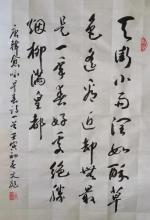 天街小雨润如酥草
色遥看近却无最
是一年春好处绝胜
烟柳满皇都
唐韩愈